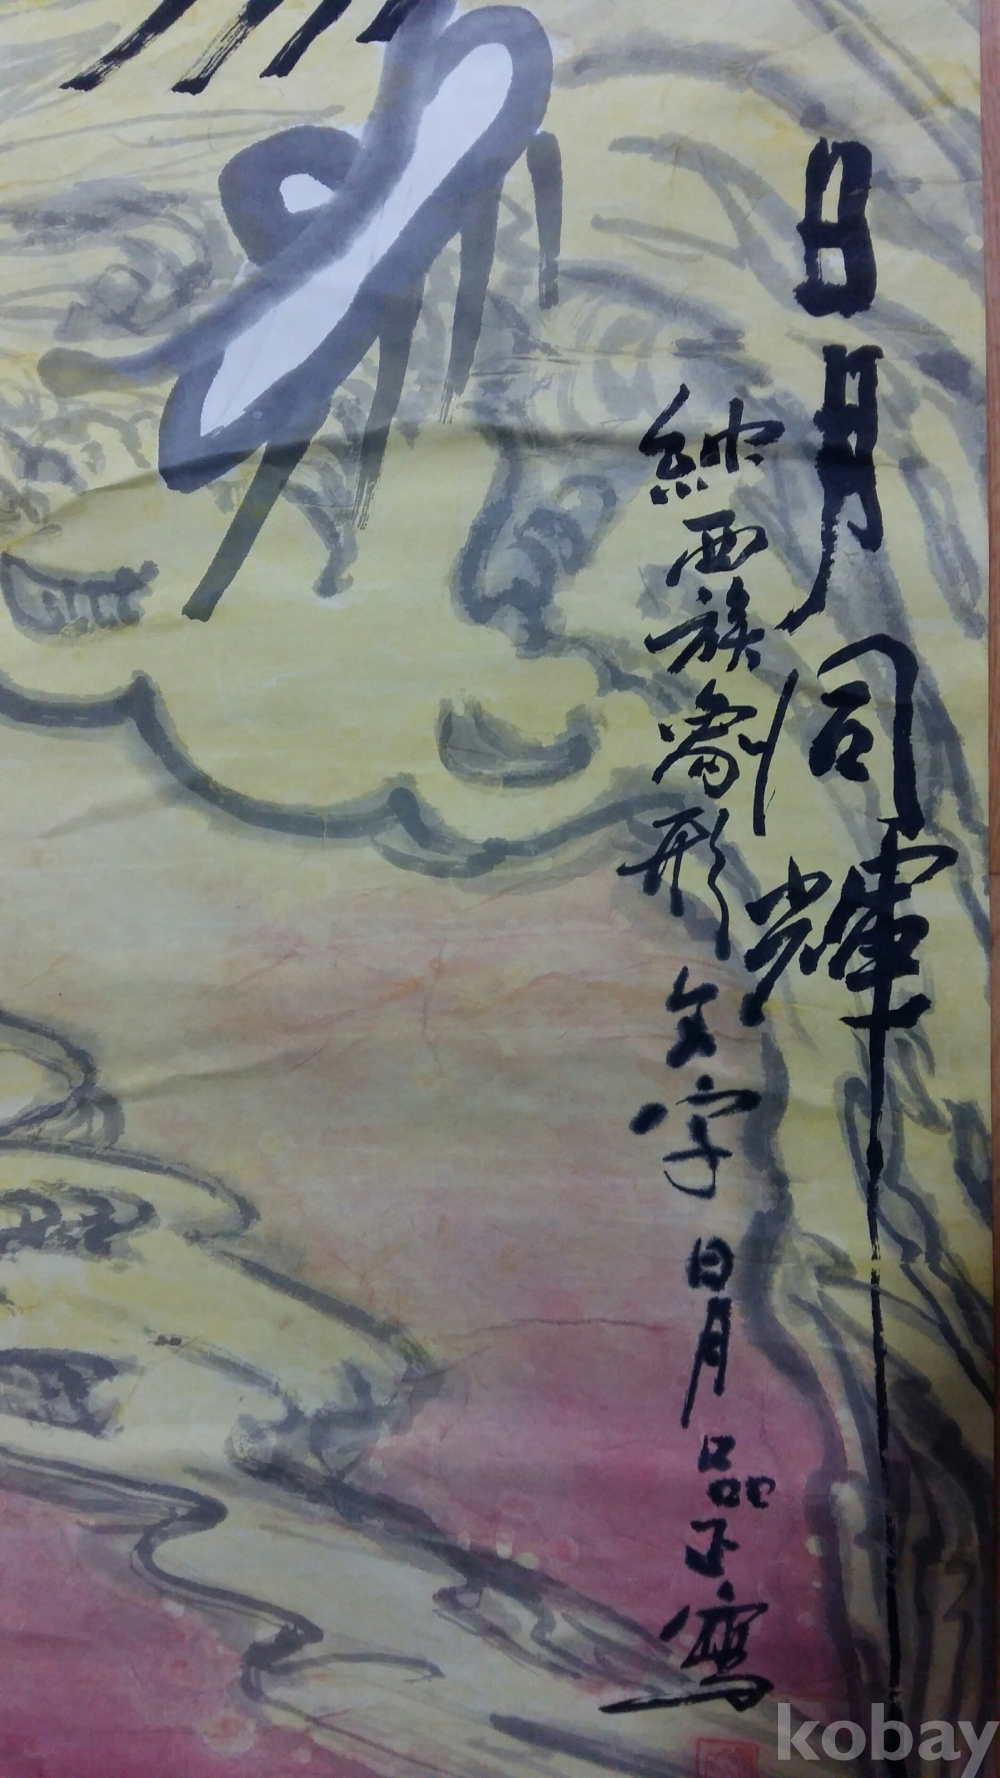 日月同輝
納西族象形文字日月品正寫
kobay